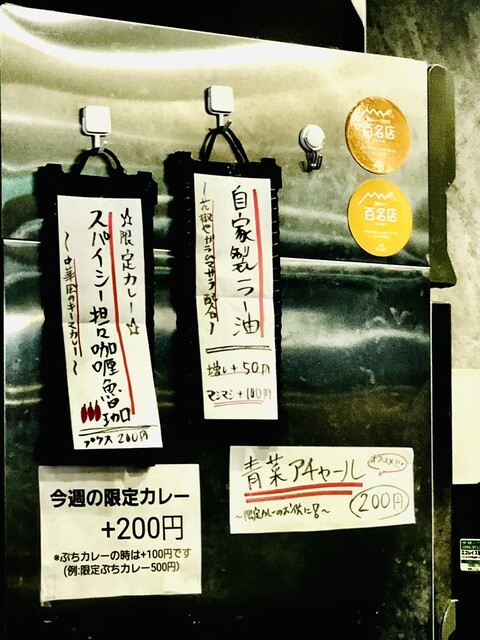 ☆限定カレー☆
スパイシー担々咖喱
～中華風のキーマカレー～
プラス200円
自家製ラー油
～花椒やガラムマサラ配合～
増し+50円
マシマシ+100円
百名店
百名店
今週の限定カレー
+200円
*ぷちカレーの時は+100円です
(例:限定ぷちカレー500円)
青菜アチャール
オススメ!!
200円
～限定カレーのお供に!～